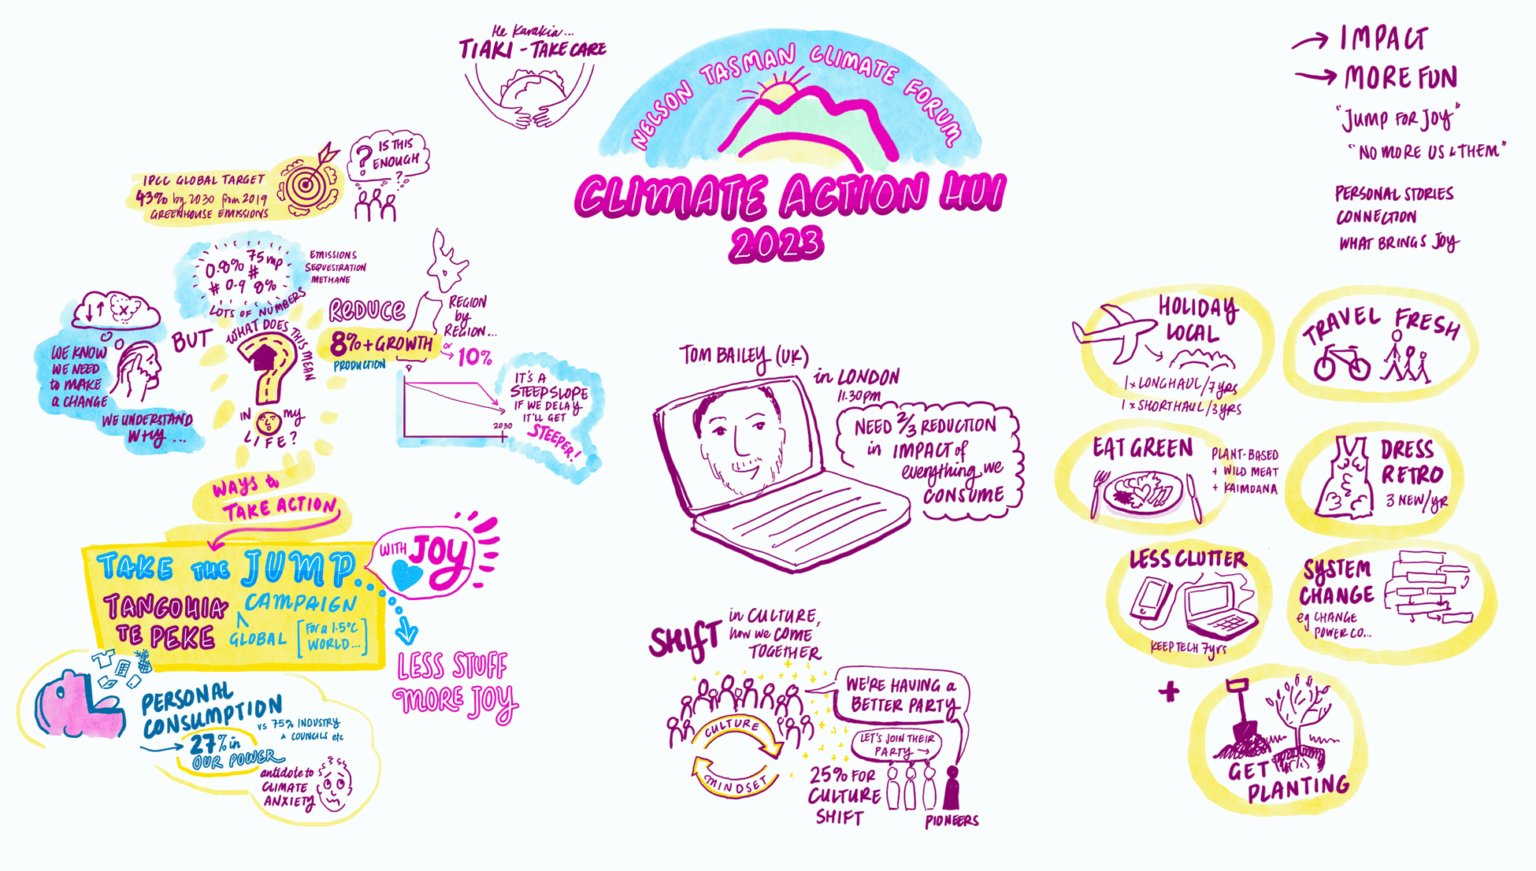 He Karakia...
TIAKI - TAKE CARE
NELSON TASMAN CLIMATE FORUM
CLIMATE ACTION HUI
2023
IPCC GLOBAL TARGET
43% by 2030 from 2019
GREENHOUSE EMISSIONS
? IS THIS
ENOUGH
?
0.8% 75mp
#
# 0.9 8%
LOTS OF NUMBERS
EMISSIONS
SEQUESTRATION
METHANE
WE KNOW
WE NEED
to MAKE
A CHANGE
WE UNDERSTAND
WHY...
BUT
WHAT DOES THIS MEAN
IN my
LIFE?
REDUCE
8% + GROWTH
PRODUCTION
or
10%
REGION
by
REGION...
2030
IT'S A
STEEP SLOPE
IF WE DELAY
IT'LL GET
STEEPER!
WAYS to
TAKE ACTION
TAKE THE JUMP
CAMPAIGN
TANGOHIA
TE PEKE
GLOBAL
[For a 1.5°C
WORLD...]
WITH JOY
LESS STUFF
MORE JOY
PERSONAL
CONSUMPTION
vs 75% INDUSTRY
& COUNCILS etc
27% in
OUR POWER
antidote to
CLIMATE
ANXIETY
TOM BAILEY (UK)
in LONDON
11.30pm
NEED 2/3 REDUCTION
in IMPACT of
everything we
CONSUME
SHIFT
in CULTURE,
how we COME
TOGETHER
CULTURE
MINDSET
WE'RE HAVING a
BETTER PARTY
LET'S JOIN THEIR
PARTY →
25% FOR
CULTURE
SHIFT
PIONEERS
→ IMPACT
→ MORE FUN
"JUMP FOR JOY"
"NO MORE US & THEM"
PERSONAL STORIES
CONNECTION
WHAT BRINGS JOY
HOLIDAY
LOCAL
1 x LONGHAUL/7yrs
1 x SHORTHAUL/3yrs
TRAVEL FRESH
EAT GREEN
PLANT-BASED
+ WILD MEAT
+ KAIMOANA
DRESS
RETRO
3 NEW/yr
LESS CLUTTER
KEEP TECH 7yrs
SYSTEM
CHANGE
eg CHANGE
POWER CO...
+
GET
PLANTING